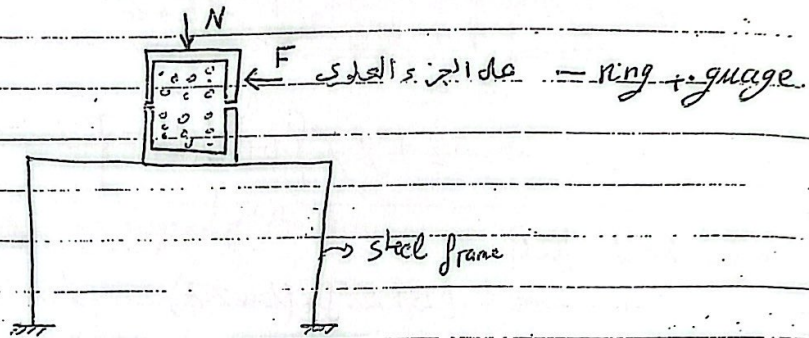 N
F على الجزء العلوى = ring + guage.
steel frame